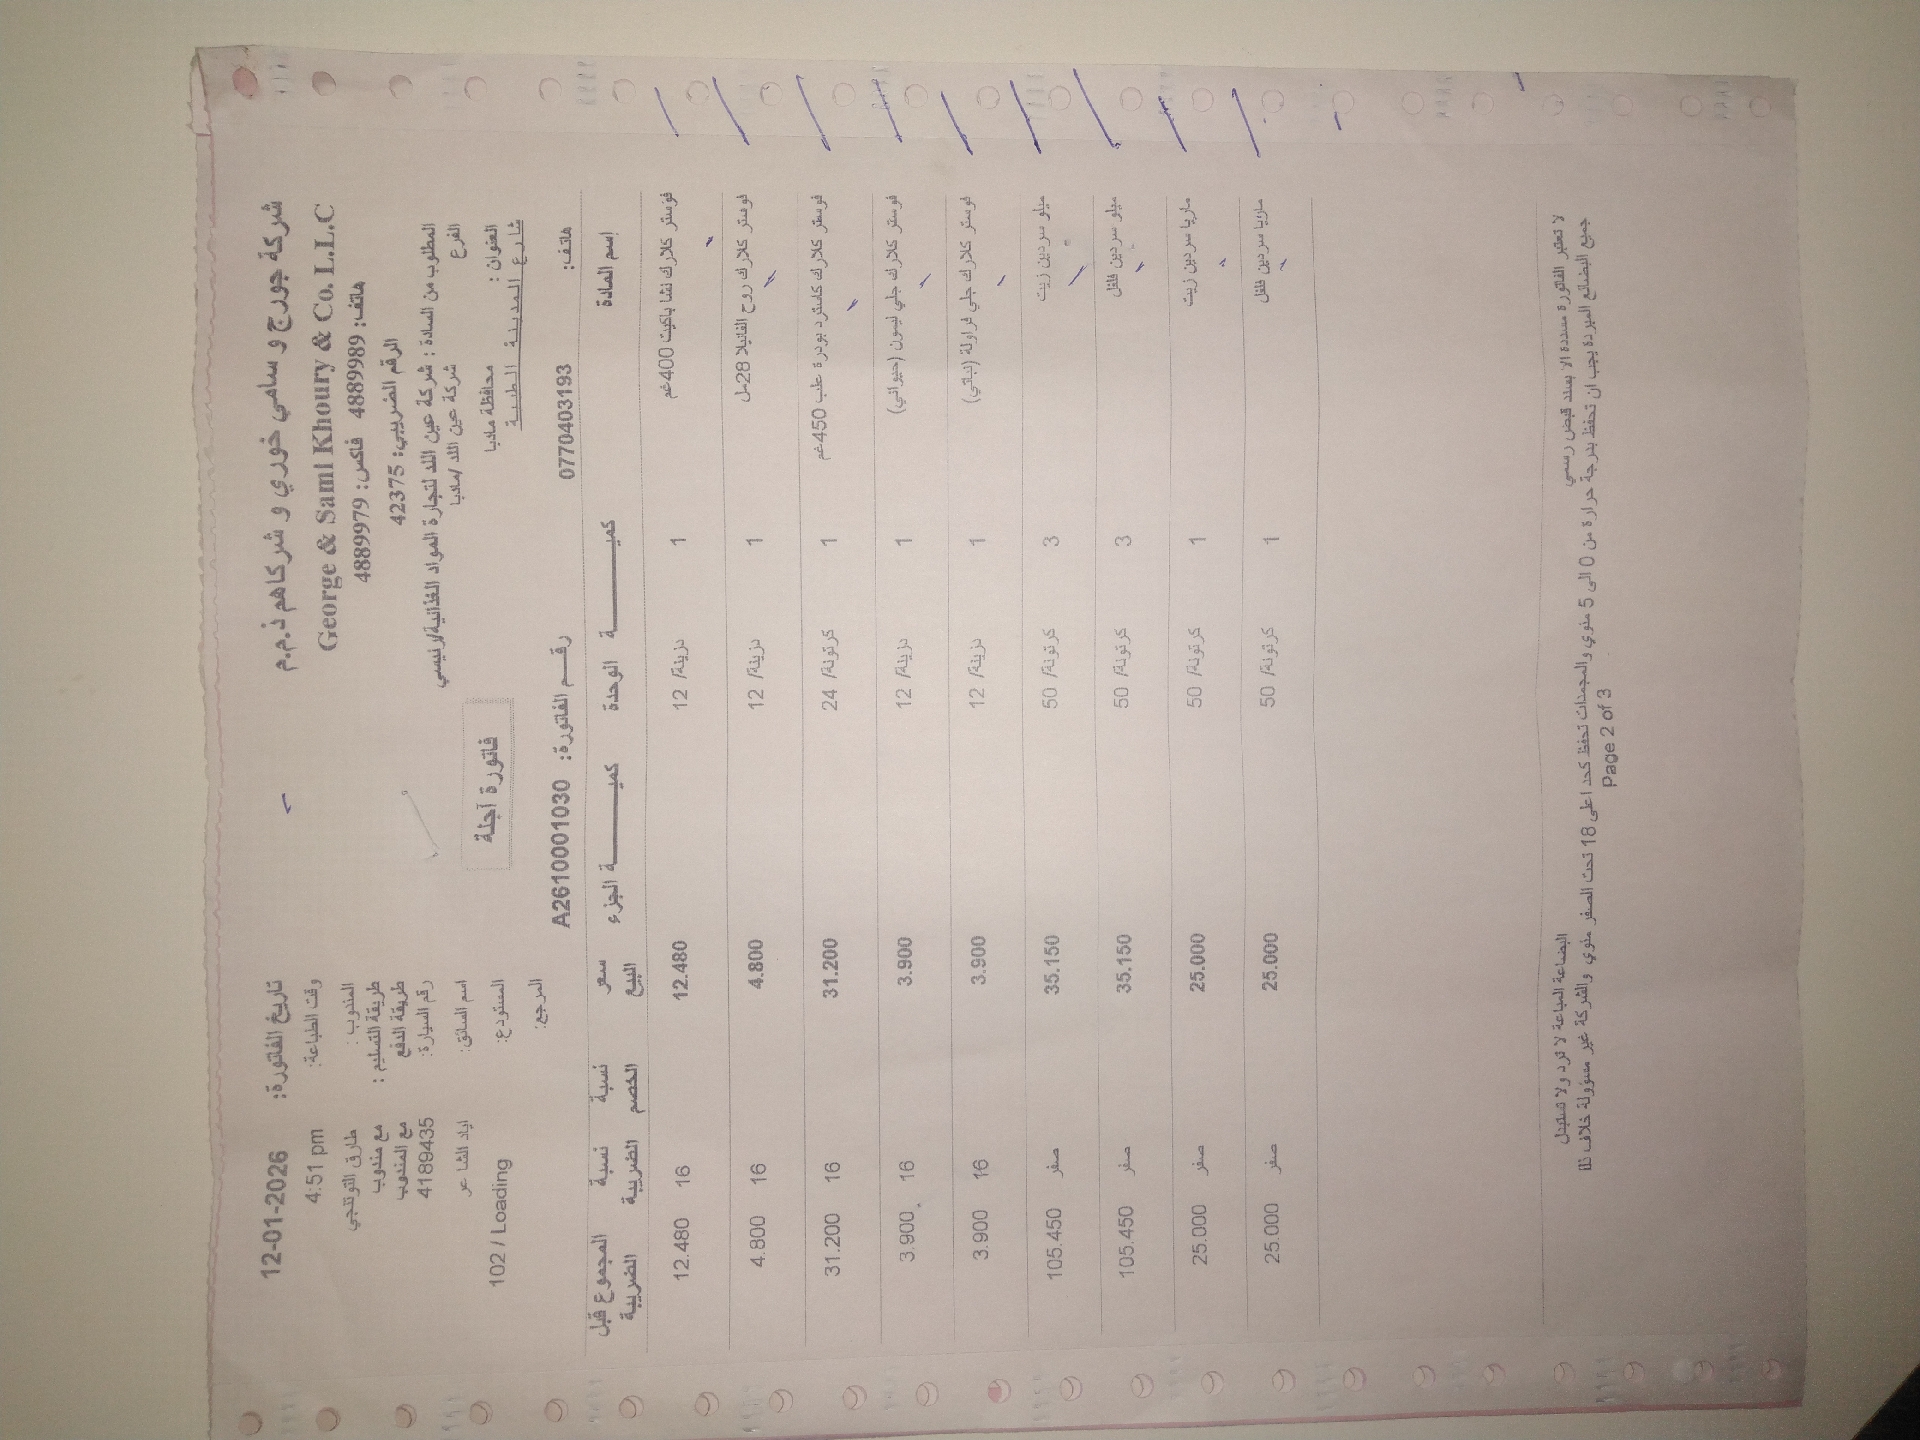 شركة جورج و سامي خوري و شركاهم ذ.م.م
George & Sami Khoury & Co. L.L.C
هاتف: 4889989 فاكس: 4889979
الرقم الضريبي: 42375
المطلوب من السادة : شركة عين اللد لتجارة المواد الغذائية/رئيسي
الفرع شركة عين اللد /مادبا
العنوان : محافظة مادبا
شارع المدينة الطبية
هاتف: 0770403193
فاتورة آجلة
رقم الفاتورة: A2610001030
تاريخ الفاتورة: 12-01-2026
وقت الطباعة: 4:51 pm
المندوب : طارق التوتنجي
طريقة التسليم : مع مندوب
طريقة الدفع مع المندوب
رقم السيارة: 4189435
اسم السائق: اياد الشاعر
المستودع: 102 / Loading
المرجع:
إسم المادة كميـــة الوحدة كميـــة الجزء سعر البيع نسبة الخصم نسبة الضريبة المجموع قبل الضريبة
فوستر كلارك نشا باكيت 400غم 1 دزينة/ 12 12.480 16 12.480
فوستر كلارك روح الفانيلا 28مل 1 دزينة/ 12 4.800 16 4.800
فوستر كلارك كاسترد بودرة علب 450غم 1 كرتونة/ 24 31.200 16 31.200
فوستر كلارك جلي ليمون (حيواني) 1 دزينة/ 12 3.900 16 3.900
فوستر كلارك جلي فراولة (نباتي) 1 دزينة/ 12 3.900 16 3.900
ميلو سردين زيت 3 كرتونة/ 50 35.150 صفر 105.450
ميلو سردين فلفل 3 كرتونة/ 50 35.150 صفر 105.450
ماريا سردين زيت 1 كرتونة/ 50 25.000 صفر 25.000
ماريا سردين فلفل 1 كرتونة/ 50 25.000 صفر 25.000
لا تعتبر الفاتورة مسددة الا بسند قبض رسمي البضاعة المباعة لا ترد ولا تستبدل
جميع البضائع المبردة يجب ان تحفظ بدرجة حرارة من 0 الى 5 مئوي والمجمدات تحفظ كحد اعلى 18 تحت الصفر مئوي والشركة غير مسؤولة خلاف ذلك
Page 2 of 3